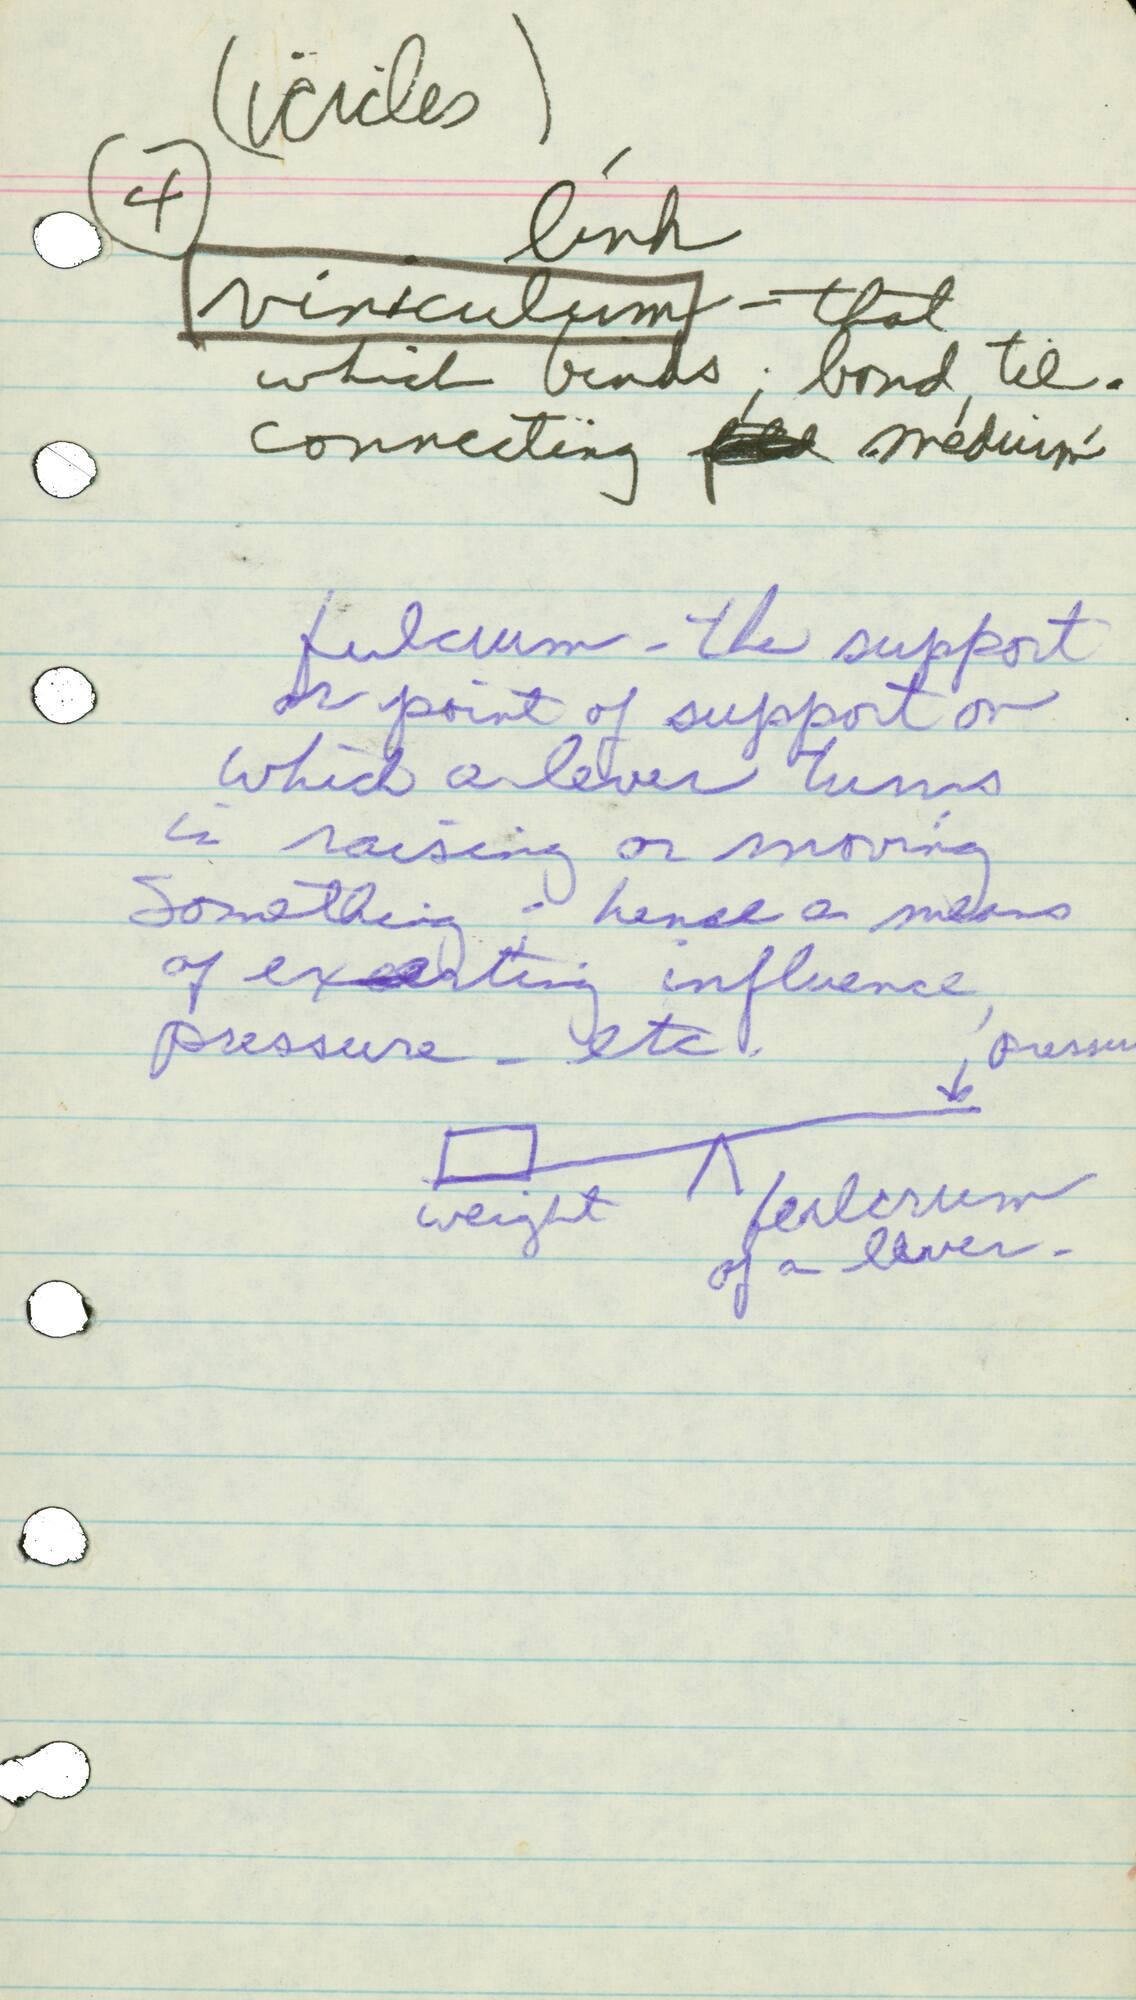 (icicles)
4
link
vinculum - that
which binds; bond, tie.
connecting medium
fulcrum - the support
or point of support on
which a lever turns
in raising or moving
Something; hence a means
of exerting influence,
pressure - etc.
pressur
weight fulcrum
of a lever -